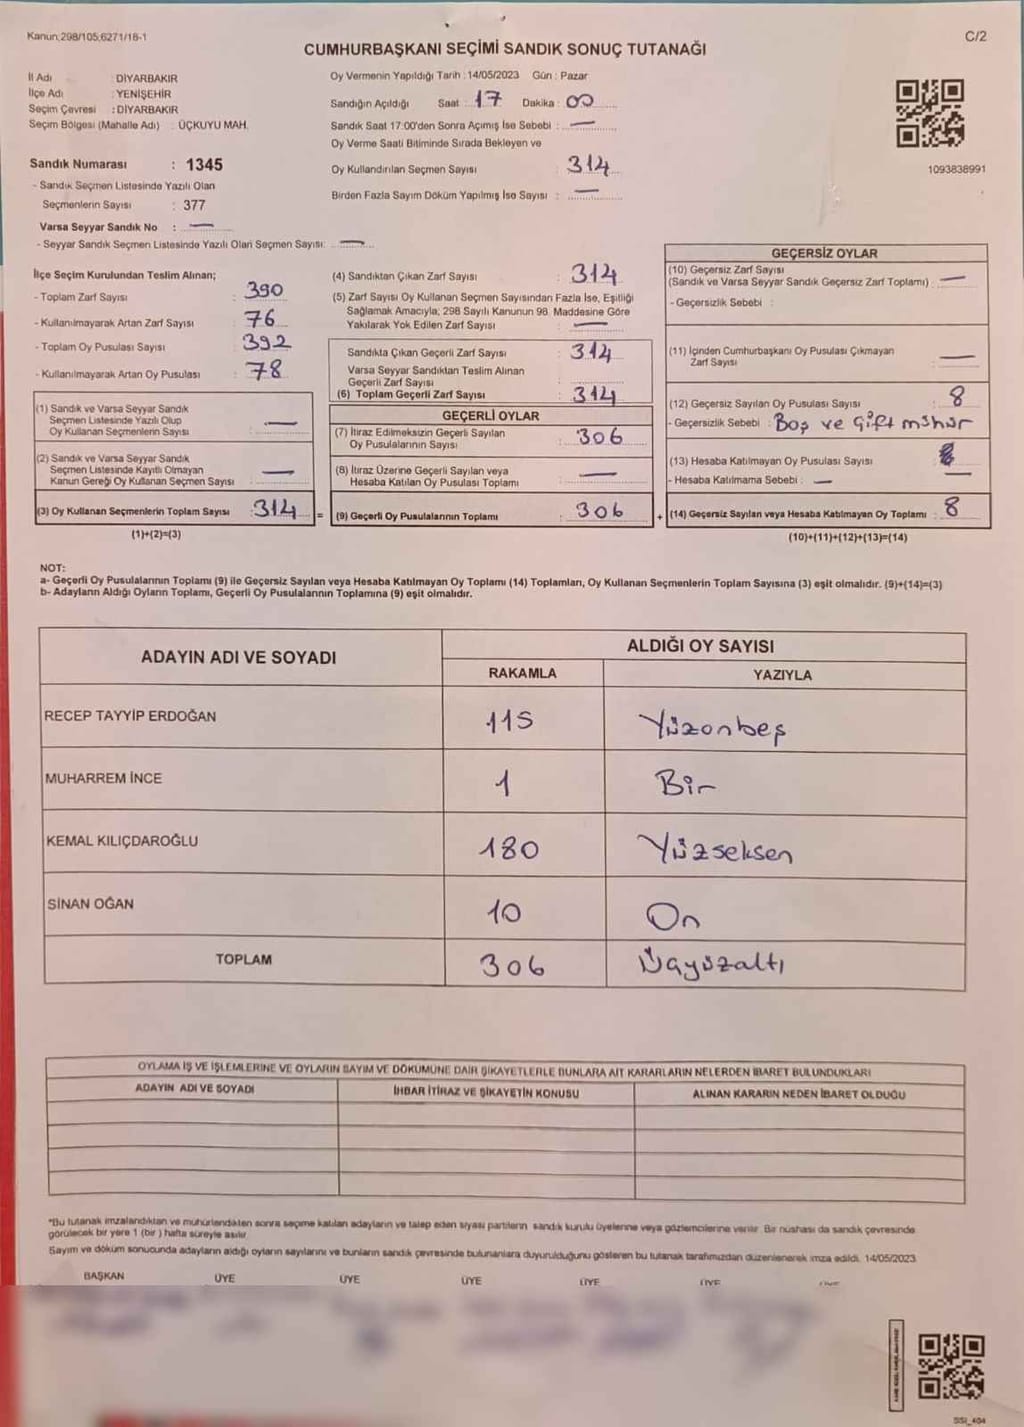 Kanun;298/105;6271/18-1
C/2
CUMHURBAŞKANI SEÇİMİ SANDIK SONUÇ TUTANAĞI
İl Adı : DİYARBAKIR
İlçe Adı : YENİŞEHİR
Seçim Çevresi : DİYARBAKIR
Seçim Bölgesi (Mahalle Adı) : ÜÇKUYU MAH.
Sandık Numarası : 1345
- Sandık Seçmen Listesinde Yazılı Olan
Seçmenlerin Sayısı : 377
Varsa Seyyar Sandık No : —
- Seyyar Sandık Seçmen Listesinde Yazılı Olan Seçmen Sayısı: —
Oy Vermenin Yapıldığı Tarih : 14/05/2023 Gün : Pazar
Sandığın Açıldığı Saat : 17 Dakika : 00
Sandık Saat 17:00'den Sonra Açımış İse Sebebi : —
Oy Verme Saati Bitiminde Sırada Bekleyen ve
Oy Kullandırılan Seçmen Sayısı : 314
Birden Fazla Sayım Döküm Yapılmış İse Sayısı : —
1093838991
İlçe Seçim Kurulundan Teslim Alınan;
- Toplam Zarf Sayısı : 390
- Kullanılmayarak Artan Zarf Sayısı : 76
- Toplam Oy Pusulası Sayısı : 392
- Kullanılmayarak Artan Oy Pusulası : 78
(1) Sandık ve Varsa Seyyar Sandık
Seçmen Listesinde Yazılı Olup
Oy Kullanan Seçmenlerin Sayısı : —
(2) Sandık ve Varsa Seyyar Sandık
Seçmen Listesinde Kayıtlı Olmayan
Kanun Gereği Oy Kullanan Seçmen Sayısı : —
(3) Oy Kullanan Seçmenlerin Toplam Sayısı : 314 =
(1)+(2)=(3)
(4) Sandıktan Çıkan Zarf Sayısı : 314
(5) Zarf Sayısı Oy Kullanan Seçmen Sayısından Fazla İse, Eşitliği
Sağlamak Amacıyla; 298 Sayılı Kanunun 98. Maddesine Göre
Yakılarak Yok Edilen Zarf Sayısı : —
Sandıkta Çıkan Geçerli Zarf Sayısı : 314
Varsa Seyyar Sandıktan Teslim Alınan
Geçerli Zarf Sayısı
(6) Toplam Geçerli Zarf Sayısı : 314
GEÇERLİ OYLAR
(7) İtiraz Edilmeksizin Geçerli Sayılan
Oy Pusulalarının Sayısı : 306
(8) İtiraz Üzerine Geçerli Sayılan veya
Hesaba Katılan Oy Pusulası Toplamı : —
(9) Geçerli Oy Pusulalarının Toplamı : 306 +
GEÇERSİZ OYLAR
(10) Geçersiz Zarf Sayısı
(Sandık ve Varsa Seyyar Sandık Geçersiz Zarf Toplamı) : —
- Geçersizlik Sebebi :
(11) İçinden Cumhurbaşkanı Oy Pusulası Çıkmayan
Zarf Sayısı : —
(12) Geçersiz Sayılan Oy Pusulası Sayısı : 8
- Geçersizlik Sebebi : Boş ve Çift mühür
(13) Hesaba Katılmayan Oy Pusulası Sayısı :
- Hesaba Katılmama Sebebi : —
(14) Geçersiz Sayılan veya Hesaba Katılmayan Oy Toplamı : 8
(10)+(11)+(12)+(13)=(14)
NOT:
a- Geçerli Oy Pusulalarının Toplamı (9) ile Geçersiz Sayılan veya Hesaba Katılmayan Oy Toplamı (14) Toplamları, Oy Kullanan Seçmenlerin Toplam Sayısına (3) eşit olmalıdır. (9)+(14)=(3)
b- Adayların Aldığı Oyların Toplamı, Geçerli Oy Pusulalarının Toplamına (9) eşit olmalıdır.
ADAYIN ADI VE SOYADI
ALDIĞI OY SAYISI
RAKAMLA YAZIYLA
RECEP TAYYİP ERDOĞAN 115 Yüzonbeş
MUHARREM İNCE 1 Bir
KEMAL KILIÇDAROĞLU 180 Yüzseksen
SİNAN OĞAN 10 On
TOPLAM 306 Üçyüzaltı
OYLAMA İŞ VE İŞLEMLERİNE VE OYLARIN SAYIM VE DÖKÜMÜNE DAİR ŞİKAYETLERLE BUNLARA AİT KARARLARIN NELERDEN İBARET BULUNDUKLARI
ADAYIN ADI VE SOYADI İHBAR İTİRAZ VE ŞİKAYETİN KONUSU ALINAN KARARIN NEDEN İBARET OLDUĞU
*Bu tutanak imzalandıktan ve mühürlendikten sonra seçime katılan adayların ve talep eden siyasi partilerin sandık kurulu üyelerine veya gözlemcilerine verilir. Bir nüshası da sandık çevresinde
görülecek bir yere 1 (bir ) hafta süreyle asılır.
Sayım ve döküm sonucunda adayların aldığı oyların sayılarını ve bunların sandık çevresinde bulunanlara duyurulduğunu gösteren bu tutanak tarafımızdan düzenlenerek imza edildi. 14/05/2023
BAŞKAN ÜYE ÜYE ÜYE ÜYE ÜYE ÜYE
SSI_404